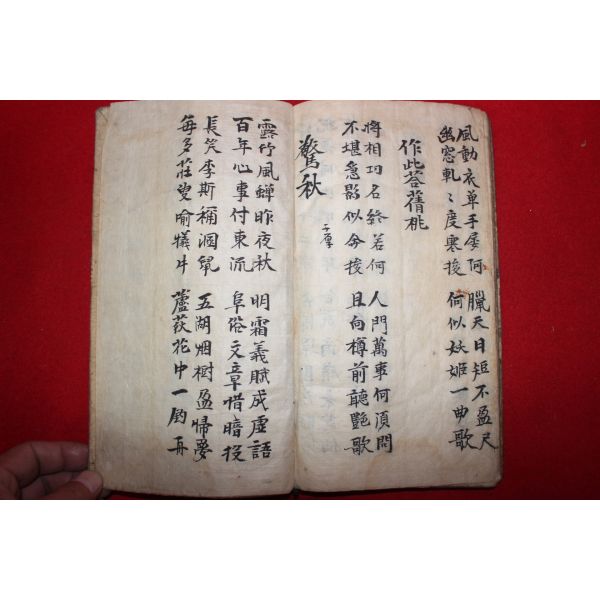 風動衣單手屢呵
幽窓軋〻度寒梭
臘天日短不盈尺
何似妖姬一曲歌
作此答舊桃
將相功名終若何
不堪急影似梭
人門萬事何須問
且向樽前聽艶歌
驚秋
露竹風蟬昨夜秋
百年心事付東流
明霜義賦成虛語
阜俗文章惜暗投
長笑李斯稱溷鼠
每多莊叟喻犧牛
五湖烟樹盈帰夢
蘆荻花中一釣舟